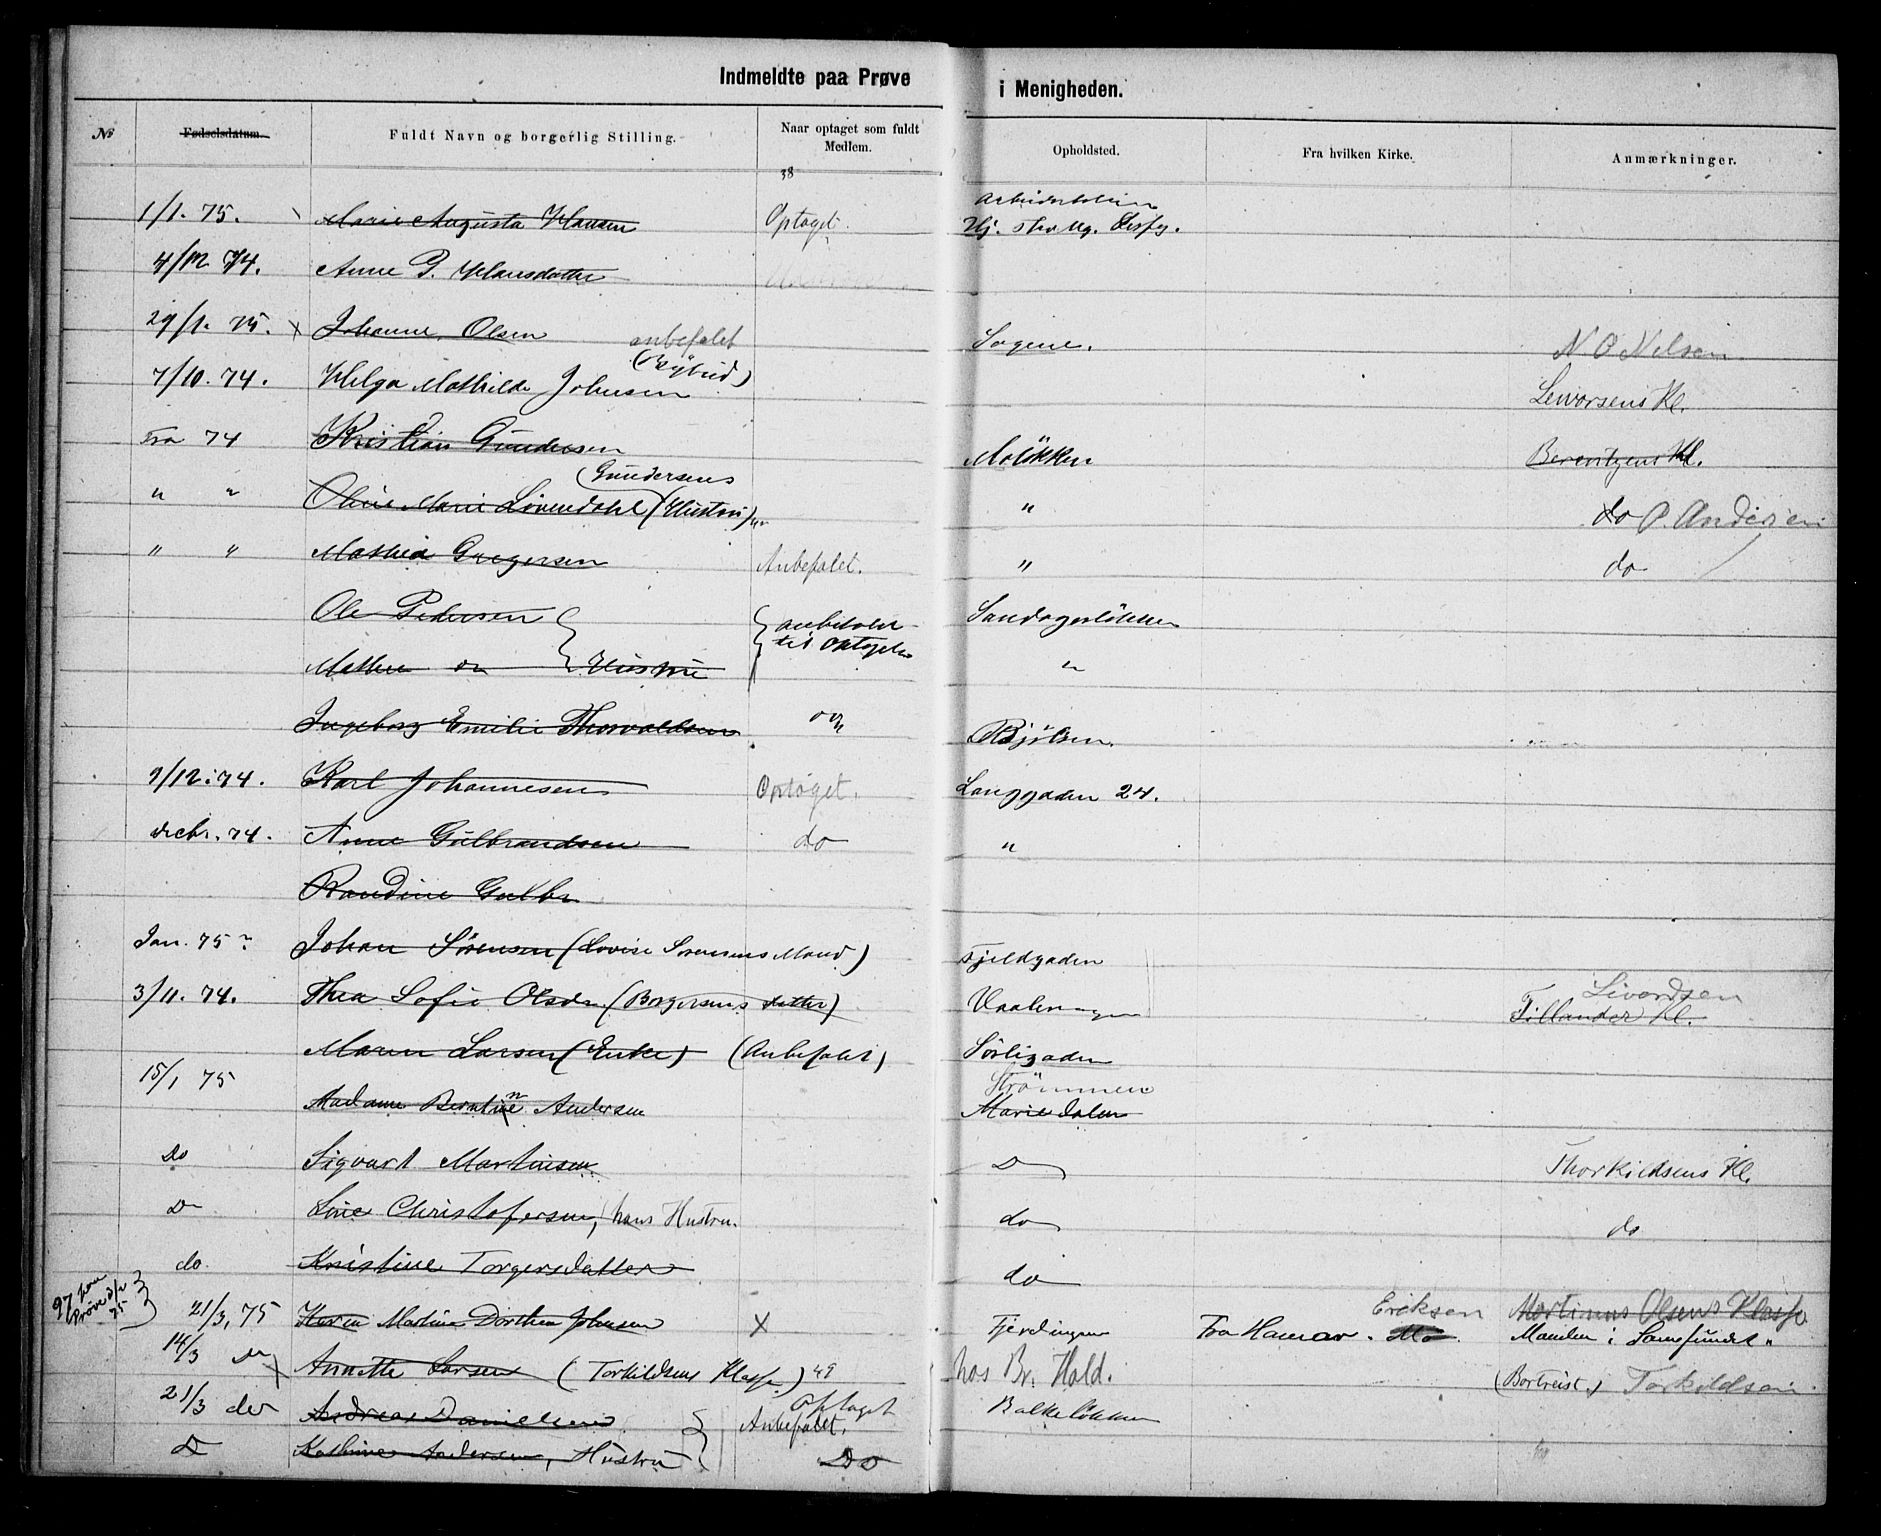 Indmeldte paa Prøve i Menigheden.
№ Fødselsdatum. Fuldt Navn og borgerlig Stilling. Naar optaget som fuldt Medlem. Opholdsted. Fra hvilken Kirke. Anmærkninger.
38
1/1. 75. Marie Augusta Hansen Optaget.
4/12 74. Anne P. Hansdatter
29/1. 75. x Johanne Olsen Sagene. N O Nelsen
anbefalet
7/10. 74. Helga Mathilde Johnsen Leivorsens Kl.
Fra 74 Kristian Gundersen Moløkken
Gundersens
" " Oline Marie Lövendahl (Hustru) " do P. Andersen
" " Mathea Gregersen Anbefalet. " do
Ole Pedersen } { anbefalet til Optagelse Sandagerløkken
Mathea do } Hustru "
Ingeborg Emilie Thorvaldsen do Bjölsen.
9/12. 74. Karl Johannesen Optaget. Langgaden 24.
decbr. 74. Anne Gulbrandsen do "
Randine Gulbr
Jan. 75 ? Johan Sørensen (Lovise Sørensens Mand) Fjeldgaden
Livordsen
3/11. 74. Thea Sofie Olsdr (Borgersens datter) Vaalerengen Tillander Kl.
Maren Larsen (Enke) (Anbefalet) Sörligaden
15/1 75 Strömmen
Madame Berntine Andersen Mariedalen
Do Sigvart Martinsen Do Thorkildsens Kl.
Do Line Christofersen, hans Hustru. do do
do. Kristine Torgersdatter do
97 paa Prøve 3/2 75 }
Eriksen Martinus Olsens Klasse
21/3, 75 Karen Martine Dorthea Johnsen X Fjerdingen Fra Hamar. Manden i Samfundet "
14/3 Do Annette Larsen (Torkildsens Klasse) 49 hos Br. Hald. (Bortreist.) Torkildsen.
Optaget
21/3 do Andreas Danielsen } Anbefalet. Balkeløkken
D Kathrine Andersen, Hustru } Do